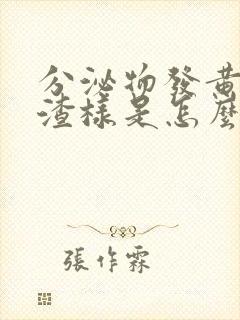 分泌物發黃
渣樣是怎麼
張作霖